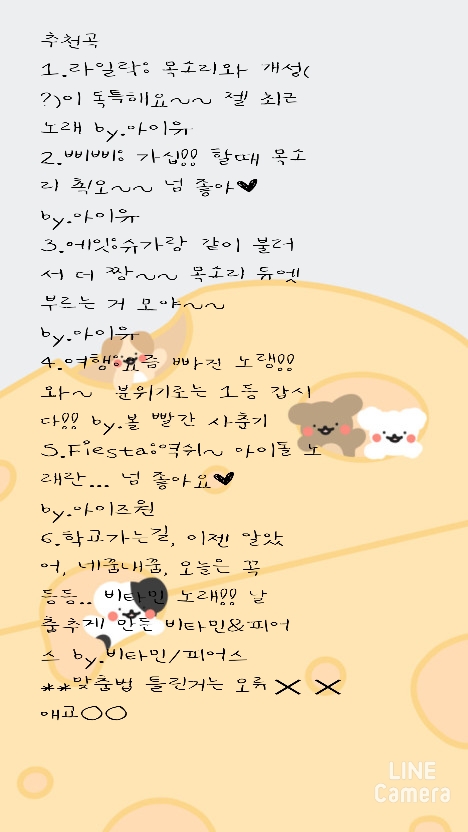 추천곡
1.라일락: 목소리와 개성(
?)이 독특해요~~ 젤 최근
노래 by.아이유
2.삐삐: 가십!! 할때 목소
리 최오~~ 넘 좋아♥
by.아이유
3.에잇:슈가랑 같이 불러
서 더 짱~~ 목소리 듀엣
부르는 거 모야~~
by.아이유
4.여행:요즘 빠진 노램!!
와~ 분위기로는 1등 갑시
다!! by.볼 빨간 사춘기
5.Fiesta:역쉬~ 아이돌 노
래란... 넘 좋아요♥
by.아이즈원
6.학교가는길, 이젠 알았
어, 네꿈내꿈, 오늘은 꼭
등등.. 비타민 노래!! 날
춤추게 만든 비타민&피어
스 by.비타민/피어스
**맞춤법 틀린거는 오류 X X
애교○○
LINE
Camera